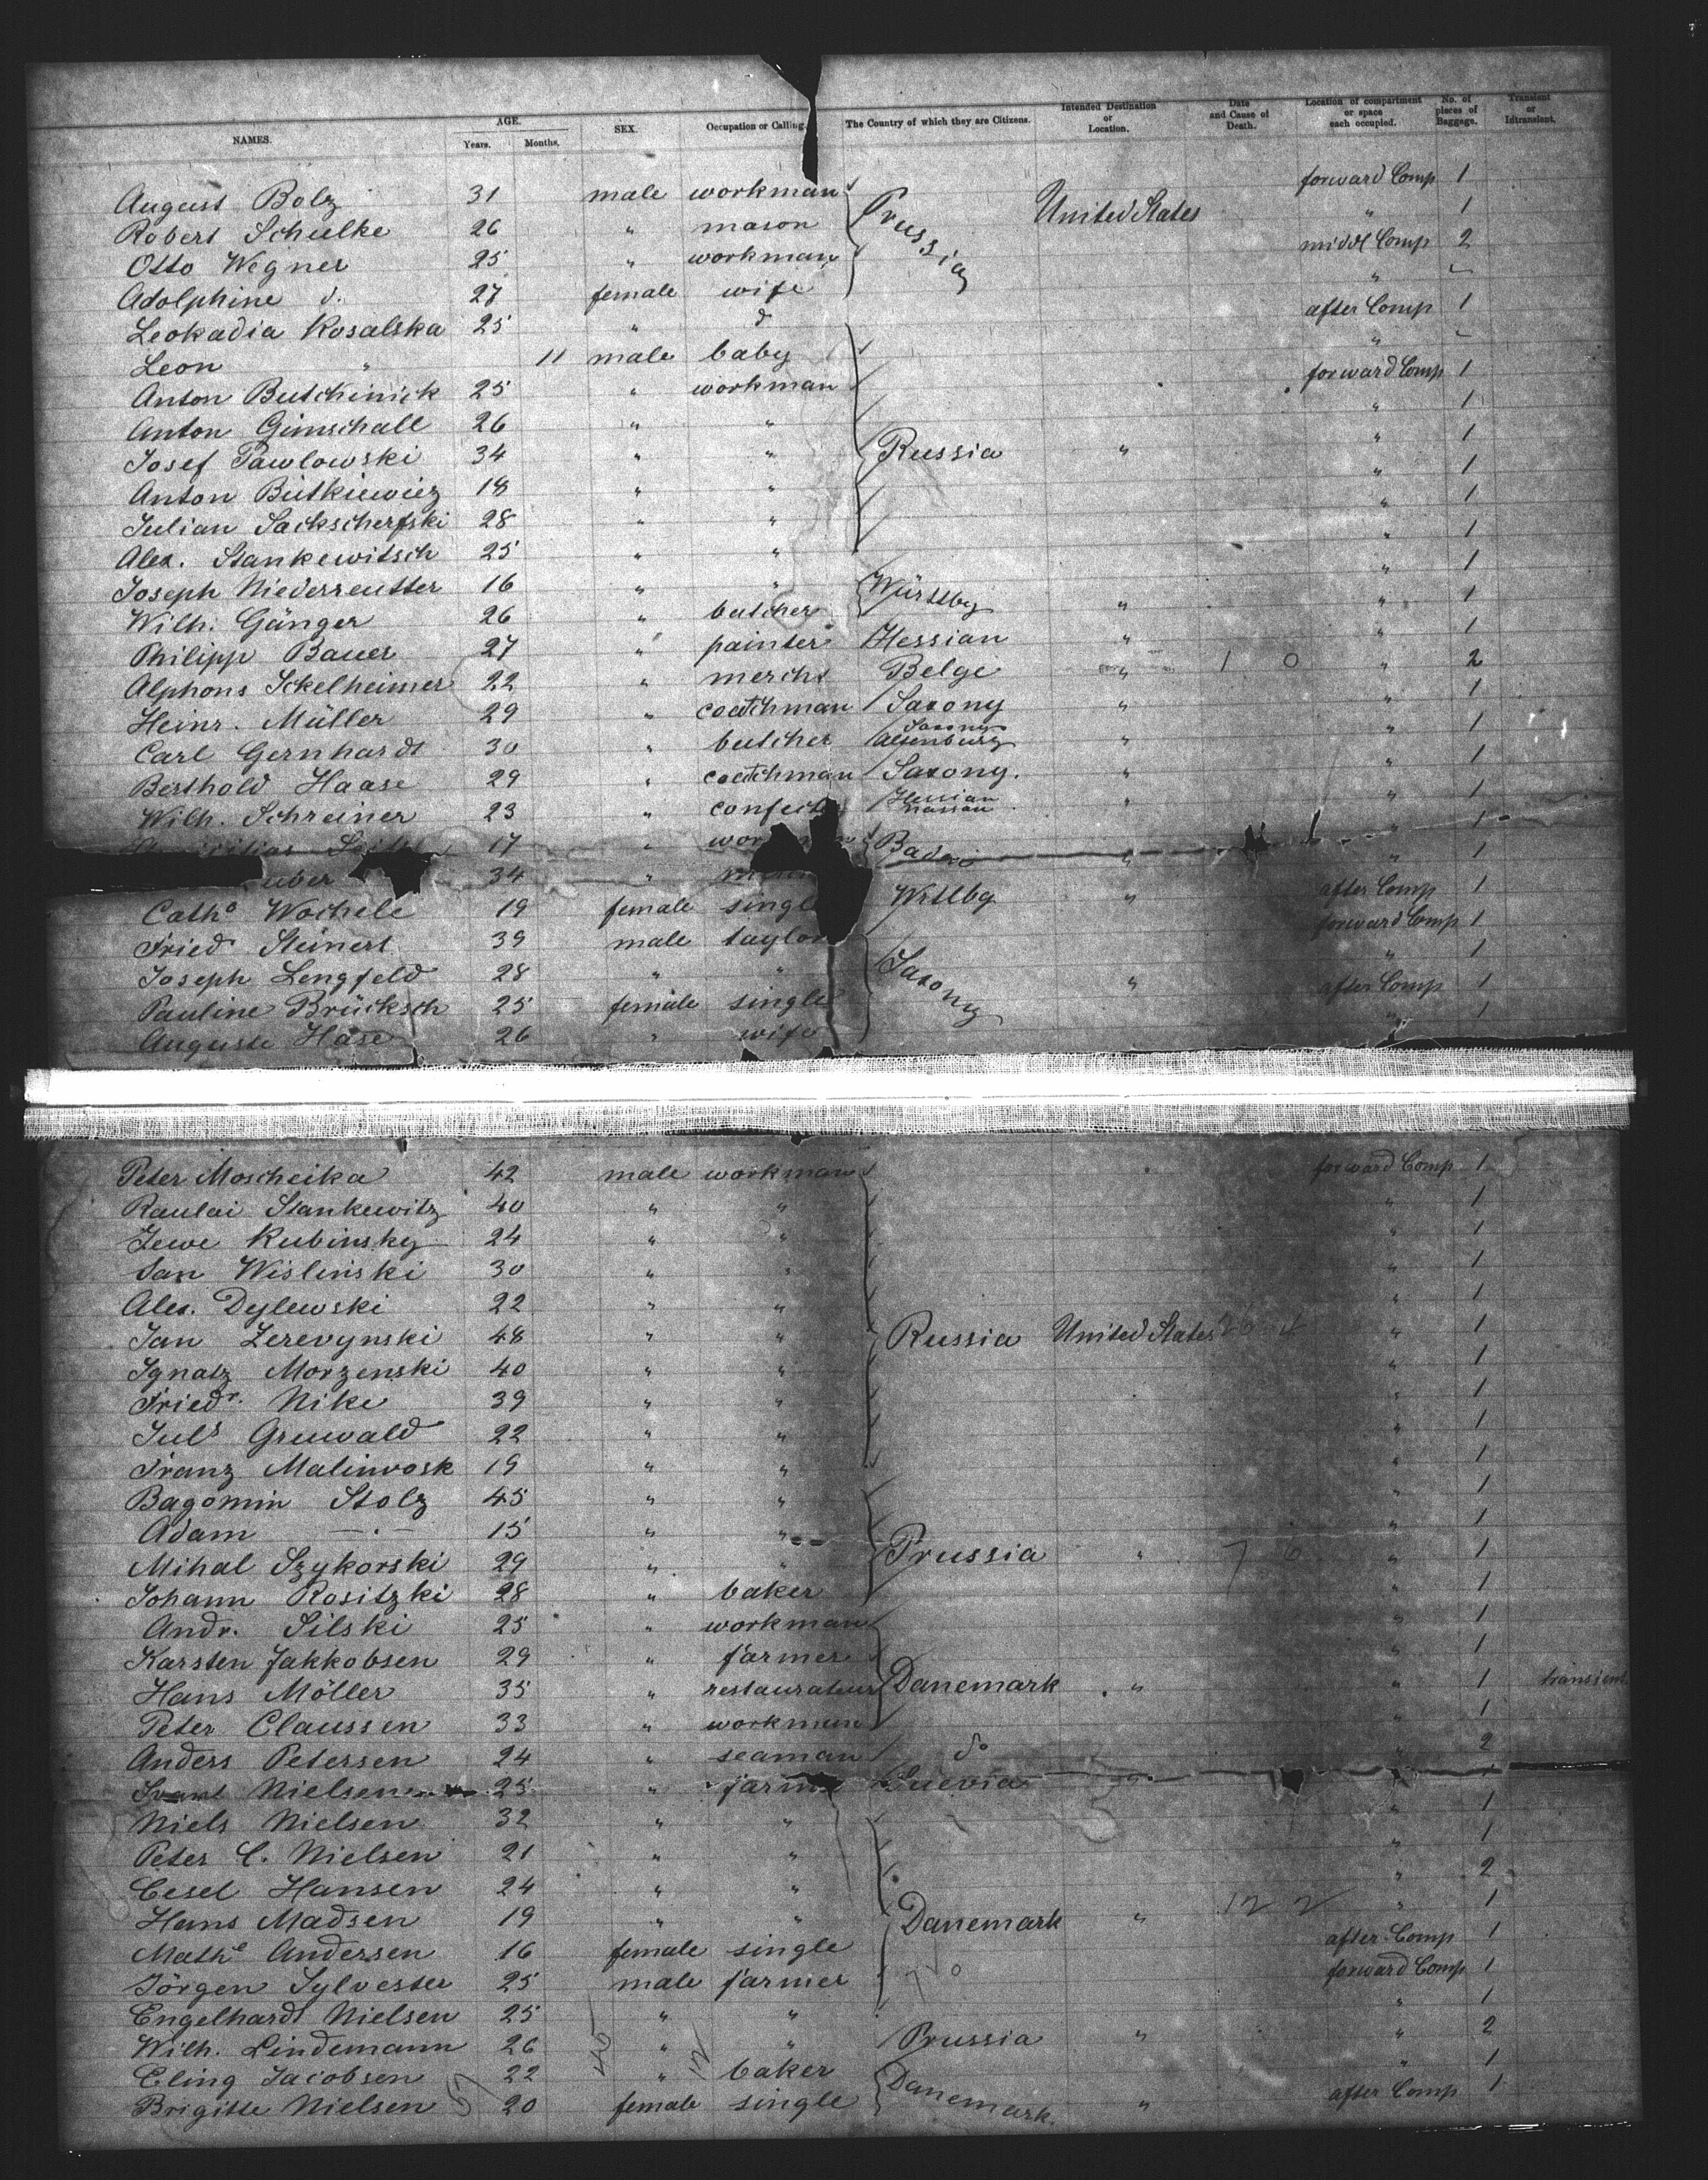 NAMES. AGE. Years. Months. SEX. Occupation or Calling. The Country of which they are Citizens. Intended Destination or Location. Date and Cause of Death. Location of compartment or space each occupied. No. of pieces of Baggage. Transient or Intransient.
August Bolz 31 male workman Prussia United States forward Comp 1
Robert Schulke 26 " mason " 1
Otto Wegner 25 " workman middl Comp 2
Adolphine d. 27 female wife " "
Leokadia Kosalska 25 " d after Comp 1
Leon " 11 male baby " "
Anton Butschinick 25 " workman forward Comp 1
Anton Gimschall 26 " " " 1
Josef Pawlowski 34 " " Russia " " 1
Anton Butkiewicz 18 " " " 1
Julian Sackscherfski 28 " " " 1
Alex. Stankewitsch 25 " " " 1
Joseph Niederreutter 16 " " Würtbg " 1
Wilh. Gänger 26 " butcher " " 1
Philipp Bauer 27 " painter Hessian " " 1
Alphons Ickelheimer 22 " mercht Belge " 1 0 " 2
Heinr. Müller 29 " coatchman Saxony " 1
Carl Gernhardt 30 " butcher Saxony Altenburg " " 1
Berthold Haase 29 " coatchman Saxony. " " 1
Wilh. Schreiner 23 " confect Hessian nassau " " 1
17 " Baden " 1
uber 34 " " " 1
Cathe Wochele 19 female single Wttbg " after Comp 1
Friedr Steinert 39 male taylor forward Comp 1
Joseph Lengfeld 28 " " Saxony " " 1
Pauline Brücksch 25 female single after Comp 1
Auguste Hase 26 " wife " 1
Peter Moscheika 42 male workman forward Comp 1
Raulai Stankewitz 40 " " " 1
Jewe Rubinsky 24 " " " 1
Jan Wislinski 30 " " " 1
Alex. Dylewski 22 " " " 1
Jan Zerevynski 48 " " Russia United States " 1
Ignatz Morzenski 40 " " " 1
Friedr. Nike 39 " " " 1
Juls Gruwald 22 " " " 1
Franz Malinwosk 19 " " " 1
Bagomin Stolz 45 " " " 1
Adam —·— 15 " " " 1
Mihal Szykorski 29 " " Prussia " 7 6 " 1
Johann Rositzki 28 " baker " 1
Andr. Silski 25 " workman " 1
Karsten Jakkobsen 29 " farmer " 1
Hans Möller 35 " restaurateur Danemark " " 1 transient
Peter Claussen 33 " workman " 1
Anders Petersen 24 " seaman do " 2
Nielsen 25 " farm Suevia "
Niels Nielsen 32 " " " 1
Peter C. Nielsen 21 " " " 1
Cesel Hansen 24 " " " 2
Hans Madsen 19 " " Danemark " 12 2 " 1
Mathe Andersen 16 female single after Comp 1
Jörgen Sylvester 25 male farmer forward Comp 1
Engelhardt Nielsen 25 " " " 1
Wilh. Lindemann 26 " " Prussia " " 2
Eling Jacobsen 22 " baker " 1
Brigitte Nielsen 20 female single Danemark. " after Comp 1